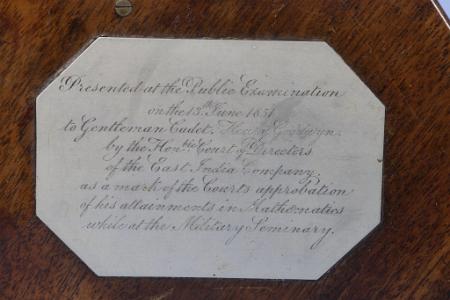 Presented at the Public Examination
on the 13th June 1851
to Gentleman Cadet, Henry Goodwyn
by the Honble Court of Directors
of the East India Company,
as a mark of the Courts approbation
of his attainments in Mathematics
while at the Military Seminary.